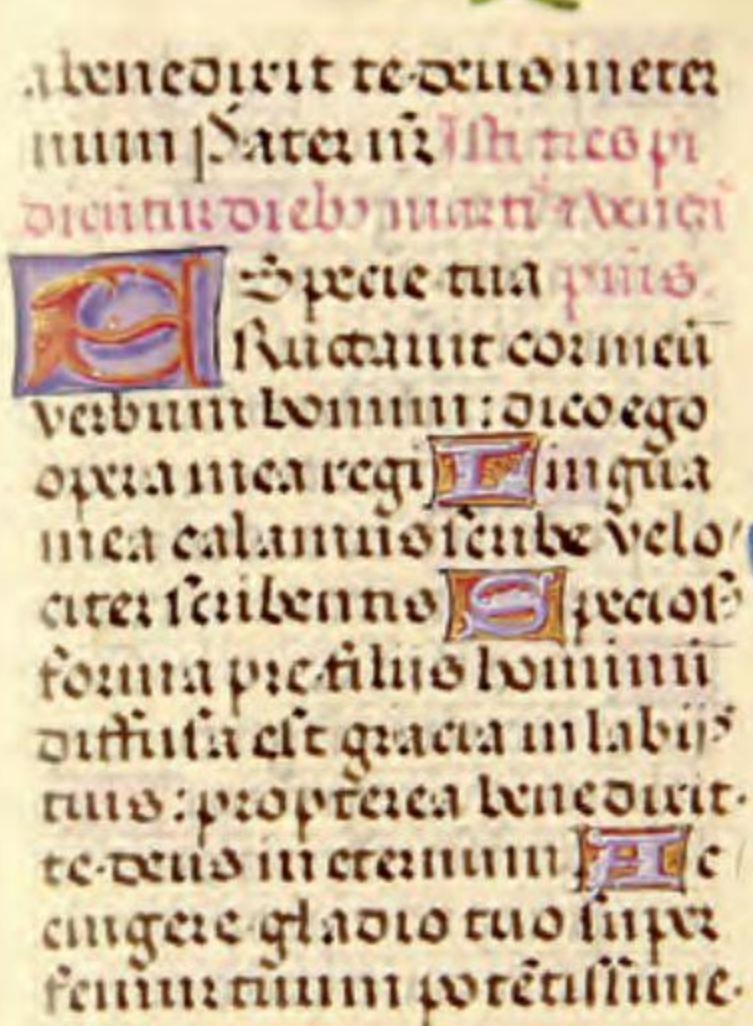 a benedixit te deus in eter
num Pater nr̄ Isti tres ps̄
dicuntur dieb⁹ marti⁊ et veneri
Specie tua psalmus.
ERuctauit cor meū
verbum bonum: dico ego
opera mea regi Lingua
mea calamus scribe velo
citer scribentis Specios⁹
forma pre filiis hominū
diffusa est gracia in labijs
tuis: propterea benedixit
te deus in eternum Ac
cingere gladio tuo super
femur tuum potētissime.